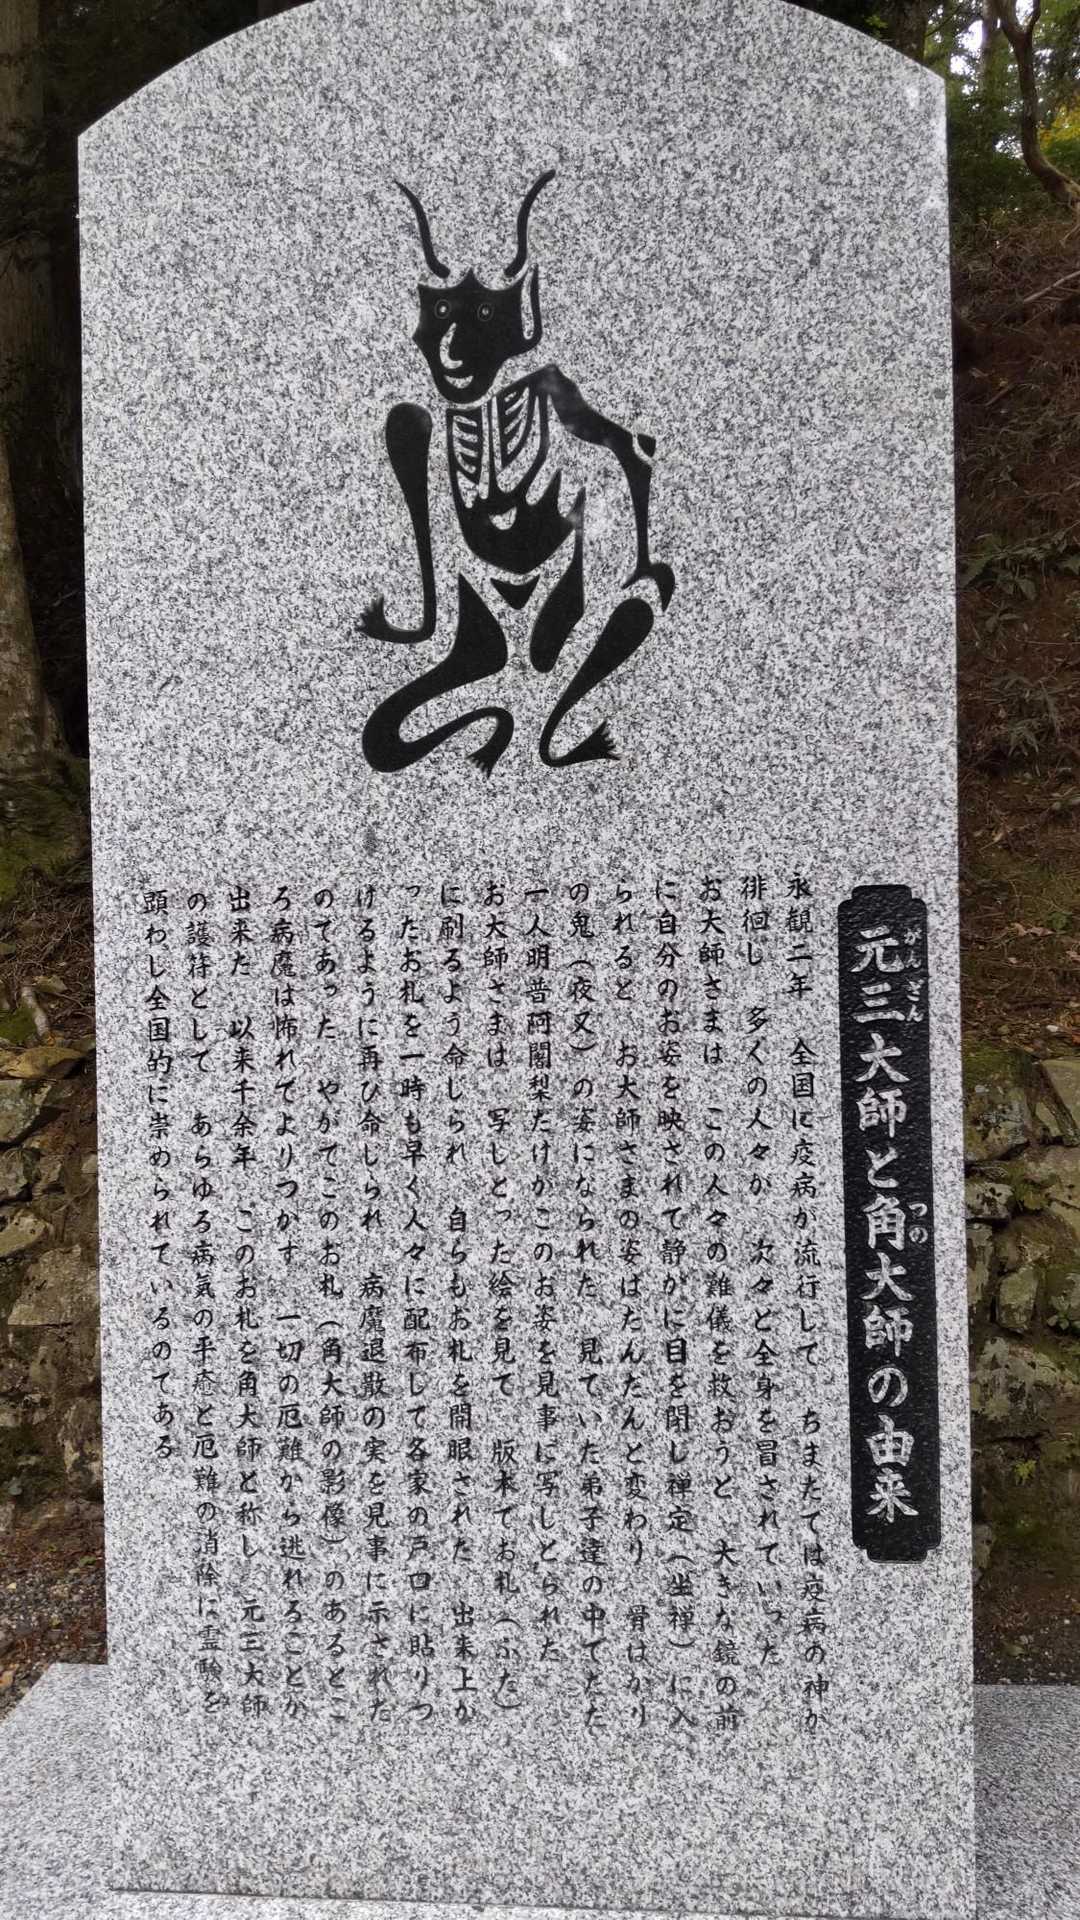 元三大師と角大師の由来
がんざん
つの
永観二年　全国に疫病が流行して　ちまたでは疫病の神が
徘徊し　多くの人々が　次々と全身を冒されていった
お大師さまは　この人々の難儀を救おうと　大きな鏡の前
に自分のお姿を映されて静かに目を閉じ禅定（坐禅）に入
られると　お大師さまの姿はだんだんと変わり　骨ばかり
の鬼（夜叉）の姿になられた　見ていた弟子達の中でただ
一人明普阿闍梨だけがこのお姿を見事に写しとられた
お大師さまは　写しとった絵を見て　版木でお札（ふだ）
に刷るよう命じられ　自らもお札を開眼された　出来上が
ったお札を一時も早く人々に配布して各家の戸口に貼りつ
けるように再び命じられ　病魔退散の実を見事に示された
のであった　やがてこのお札（角大師の影像）のあるとこ
ろ病魔は怖れてよりつかず　一切の厄難から逃れることが
出来た　以来千余年　このお札を角大師と称し　元三大師
の護符として　あらゆる病気の平癒と厄難の消除に霊験を
顕わし全国的に崇められているのである